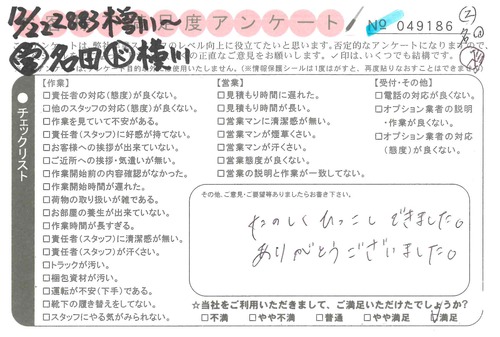 12/22 2883
足度アンケート
№ 049186
アンケートは、弊社
レベル向上に役立てたいと思います。否定的なアンケートになりますので、
の正直なご意見をお願いします。✓印は、いくつでも結構です。
使用いたしません。(※情報保護シールは1度がすと、再度貼りなおすことはできません)
チェックリスト
【作業】
□責任者の対応(態度)が良くない。
□他のスタッフの対応(態度)が良くない。
□作業を見ていて不安がある。
□責任者(スタッフ)に好感が持てない。
□お客様への挨拶が出来ていない。
□ご近所への挨拶・気遣いが無い。
□作業開始前の内容確認がなかった。
□作業開始時間が遅れた。
□荷物の取り扱いが雑である。
□お部屋の養生が出来ていない。
□作業時間が長すぎる。
□責任者(スタッフ)に清潔感が無い。
□責任者(スタッフ)が汗くさい。
□トラックが汚い。
□梱包資材が汚い。
□運転が不安(下手)である。
□靴下の履き替えをしてない。
□スタッフにやる気がみられない。
【営業】
□見積もり時間に遅れた。
□見積もり時間が長い。
□営業マンに清潔感が無い。
□営業マンが煙草くさい。
□営業マンが汗くさい。
□営業態度が良くない。
□営業の説明と作業が一致してない。
【受付・その他】
□電話の対応が良くない。
□オプション業者の説明
・作業が良くない。
□オプション業者の対応
(態度)が良くない。
その他、ご意見・ご要望等ありましたらお書き下さい。
たのしくひっこしできました。
ありがとうございました。
☆当社をご利用いただきまして、ご満足いただけたでしょうか?
□不満 □やや不満 □普通 □やや満足 ☑満足